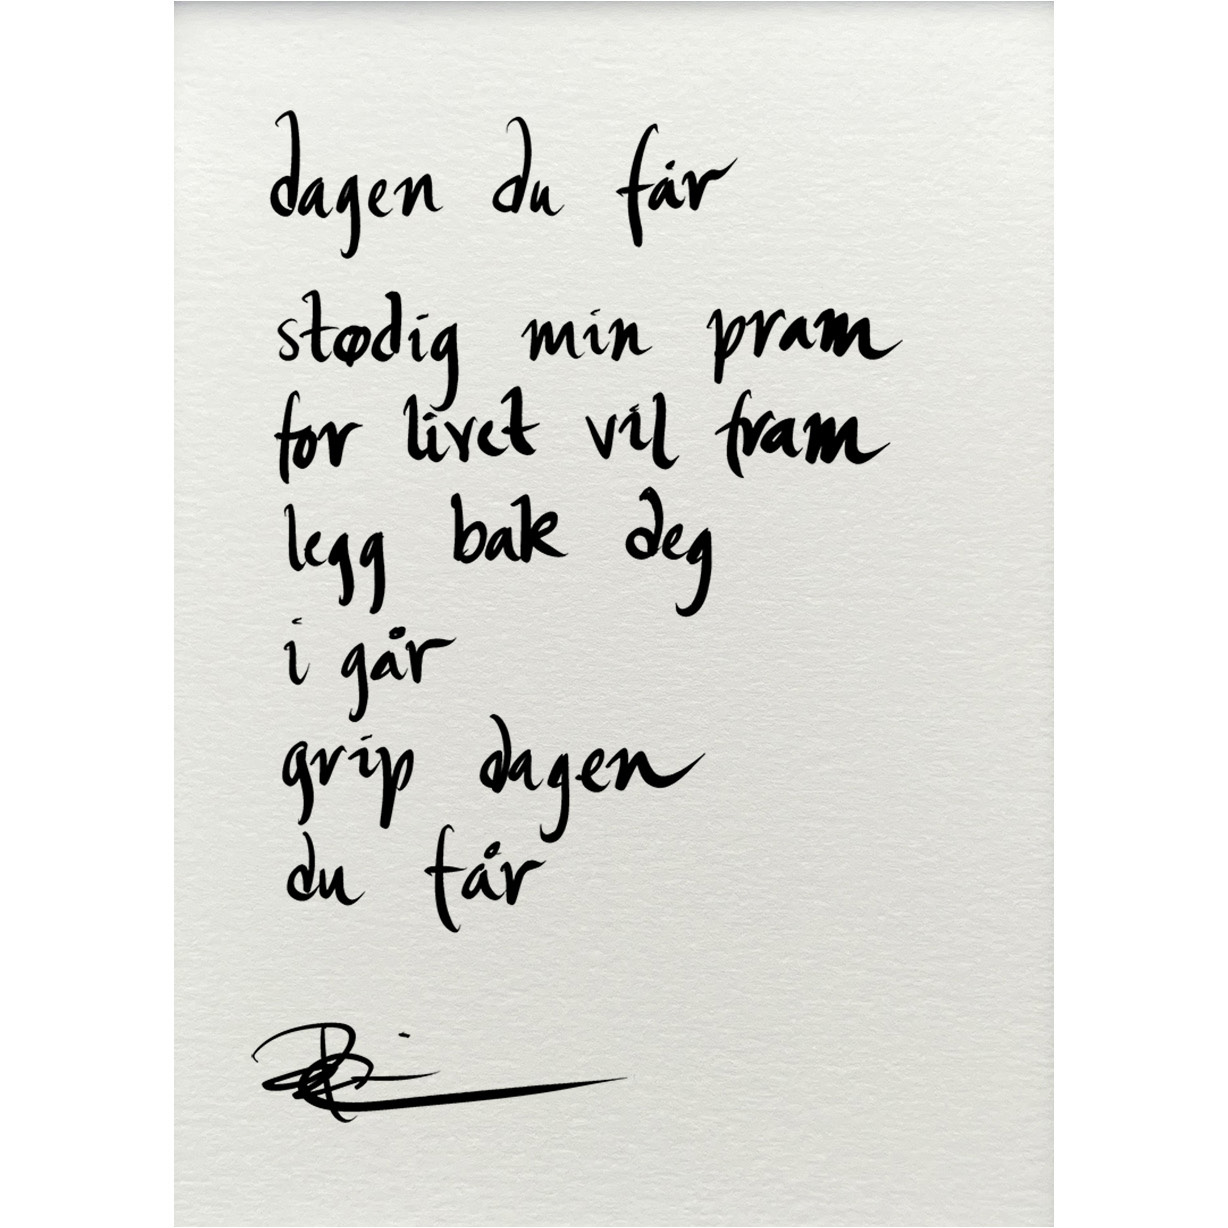 dagen du får
stødig min pram
for livet vil fram
legg bak deg
i går
grip dagen
du får